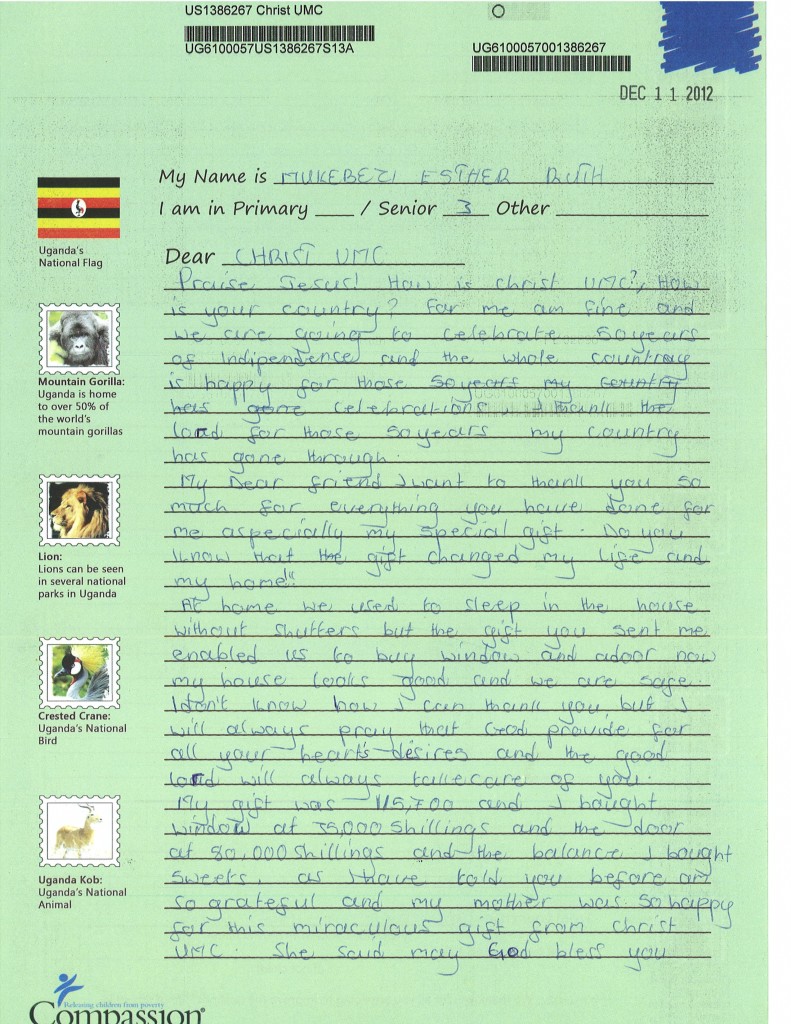 US1386267 Christ UMC
UG6100057US1386267S13A
UG6100057001386267
DEC 11 2012
My Name is MUKEBEZI ESTHER RUTH
I am in Primary ___ / Senior 3 Other
Dear CHRIST UMC
Praise Jesus! How is christ UMC?, How
is your country? For me am fine and
we are going to celebrate 50years
of Indipendence and the whole countray
is happy for those 50years my country
has gone celebrations. I thank the
lord for those 50years my country
has gone through.
My Dear friend I want to thank you so
much for everything you have done for
me aspecially my special gift. Do you
know that the gift changed my life and
my home!!
At home we used to sleep in the house
without shutters but the gift you sent me
enabled us to buy window and adoor now
my house looks good and we are safe.
I don't know how I can thank you but I
will always pray that God provide for
all your heart's desires and the good
lord will always takecare of you.
My gift was 115,700 and I bought
window at 35,000 Shillings and the door
at 80,000 Shillings and the balance I bought
sweets. as I have told you before am
so grateful and my mother was so happy
for this miraculous gift from christ
UMC. She said may God bless you
Uganda's
National Flag
Mountain Gorilla:
Uganda is home
to over 50% of
the world's
mountain gorillas
Lion:
Lions can be seen
in several national
parks in Uganda
Crested Crane:
Uganda's National
Bird
Uganda Kob:
Uganda's National
Animal
Releasing children from poverty
Compassion®